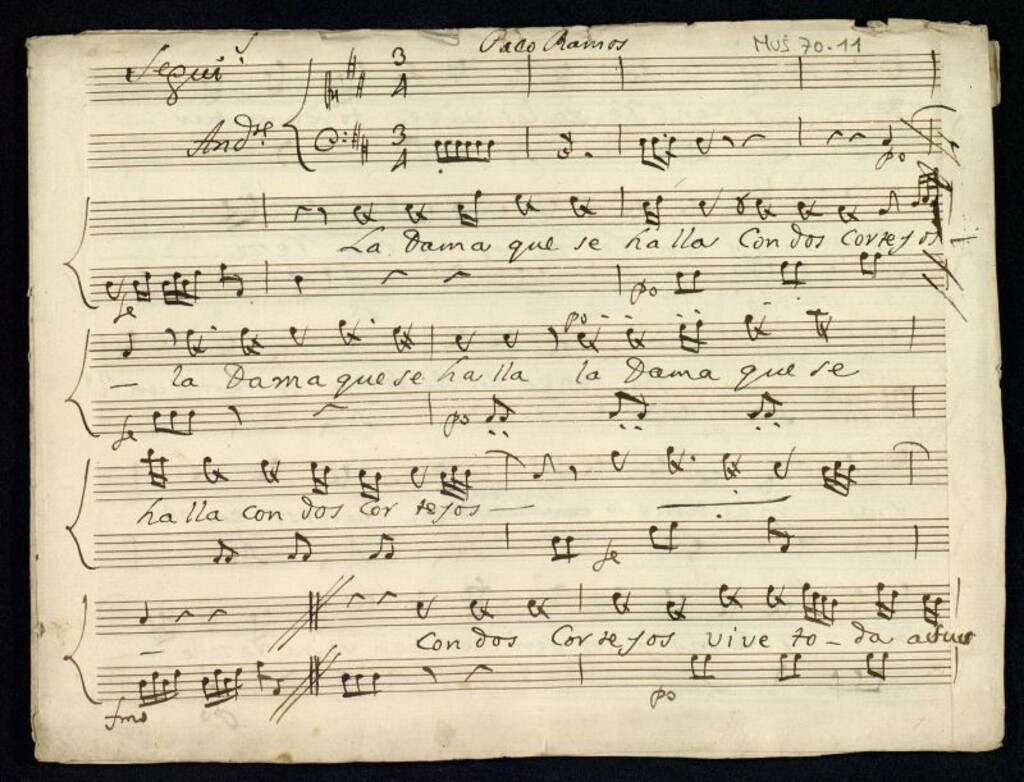 Segui.s
Paco Ramos
MUS 70-11
3
4
And.te
3
4
po
La Dama que se halla Con dos Cortejos
fe
po
po
— la Dama que se halla la Dama que se
fe
po
halla con dos Cortejos —
fe
Con dos Cortejos vive to-da
fmo
po